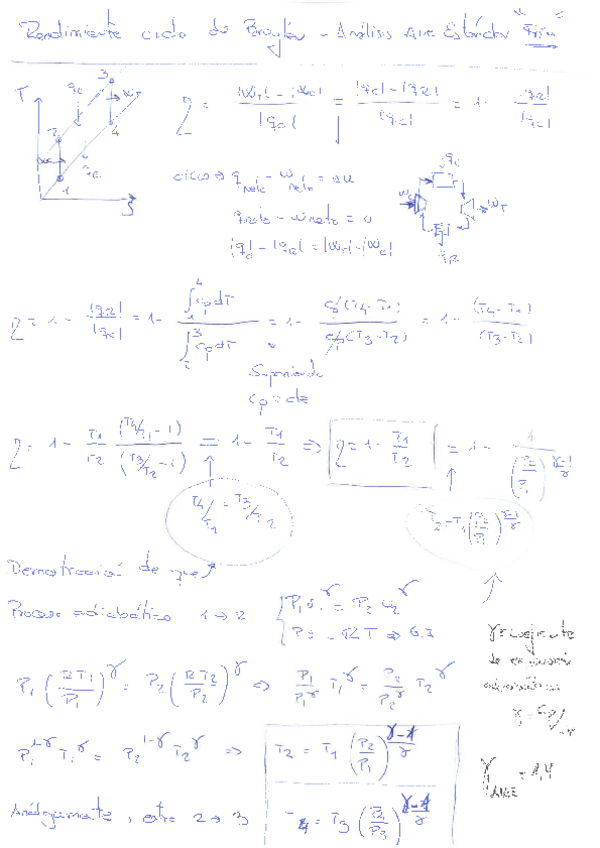 Rendimiento ciclo de Brayton - Análisis Aire Estándar "Frío"
T 3 q_c w_T 2 4 w_c 1 q_R S
η = (|w_T| - |w_c|) / |q_c| = (|q_c| - |q_R|) / |q_c| = 1 - |q_R| / |q_c|
ciclo ⇒ q_neto - w_neto = Δu
q_neto - w_neto = 0
|q_c| - |q_R| = |w_T| - |w_c|
q_c w_c w_T q_R
η = 1 - |q_R| / |q_c| = 1 - ∫₁⁴ c_p dT / ∫₂³ c_p dT = 1 - c_p (T4 - T1) / c_p (T3 - T2) = 1 - (T4 - T1) / (T3 - T2)
Suponiendo
c_p = cte
η = 1 - T1/T2 (T4/T1 - 1) / (T3/T2 - 1) = 1 - T1/T2 ⇒ η = 1 - T1/T2 = 1 - 1 / (P2/P1)^((γ-1)/γ)
T4/T1 = T3/T2
T2 = T1 (P2/P1)^((γ-1)/γ)
Demostración de que
Proceso adiabático 1 → 2
P1 υ1^γ = P2 υ2^γ
Pυ = RT ⇒ G.I
γ = coeficiente
de expansión
adiabática
γ = cp/cv
P1 (RT1/P1)^γ = P2 (RT2/P2)^γ ⇒ P1/P1^γ T1^γ = P2/P2^γ T2^γ
P1^(1-γ) T1^γ = P2^(1-γ) T2^γ ⇒ T2 = T1 (P2/P1)^((γ-1)/γ)
γ AIRE = 1,4
Análogamente, entre 2 → 3
T4 = T3 (P4/P3)^((γ-1)/γ)